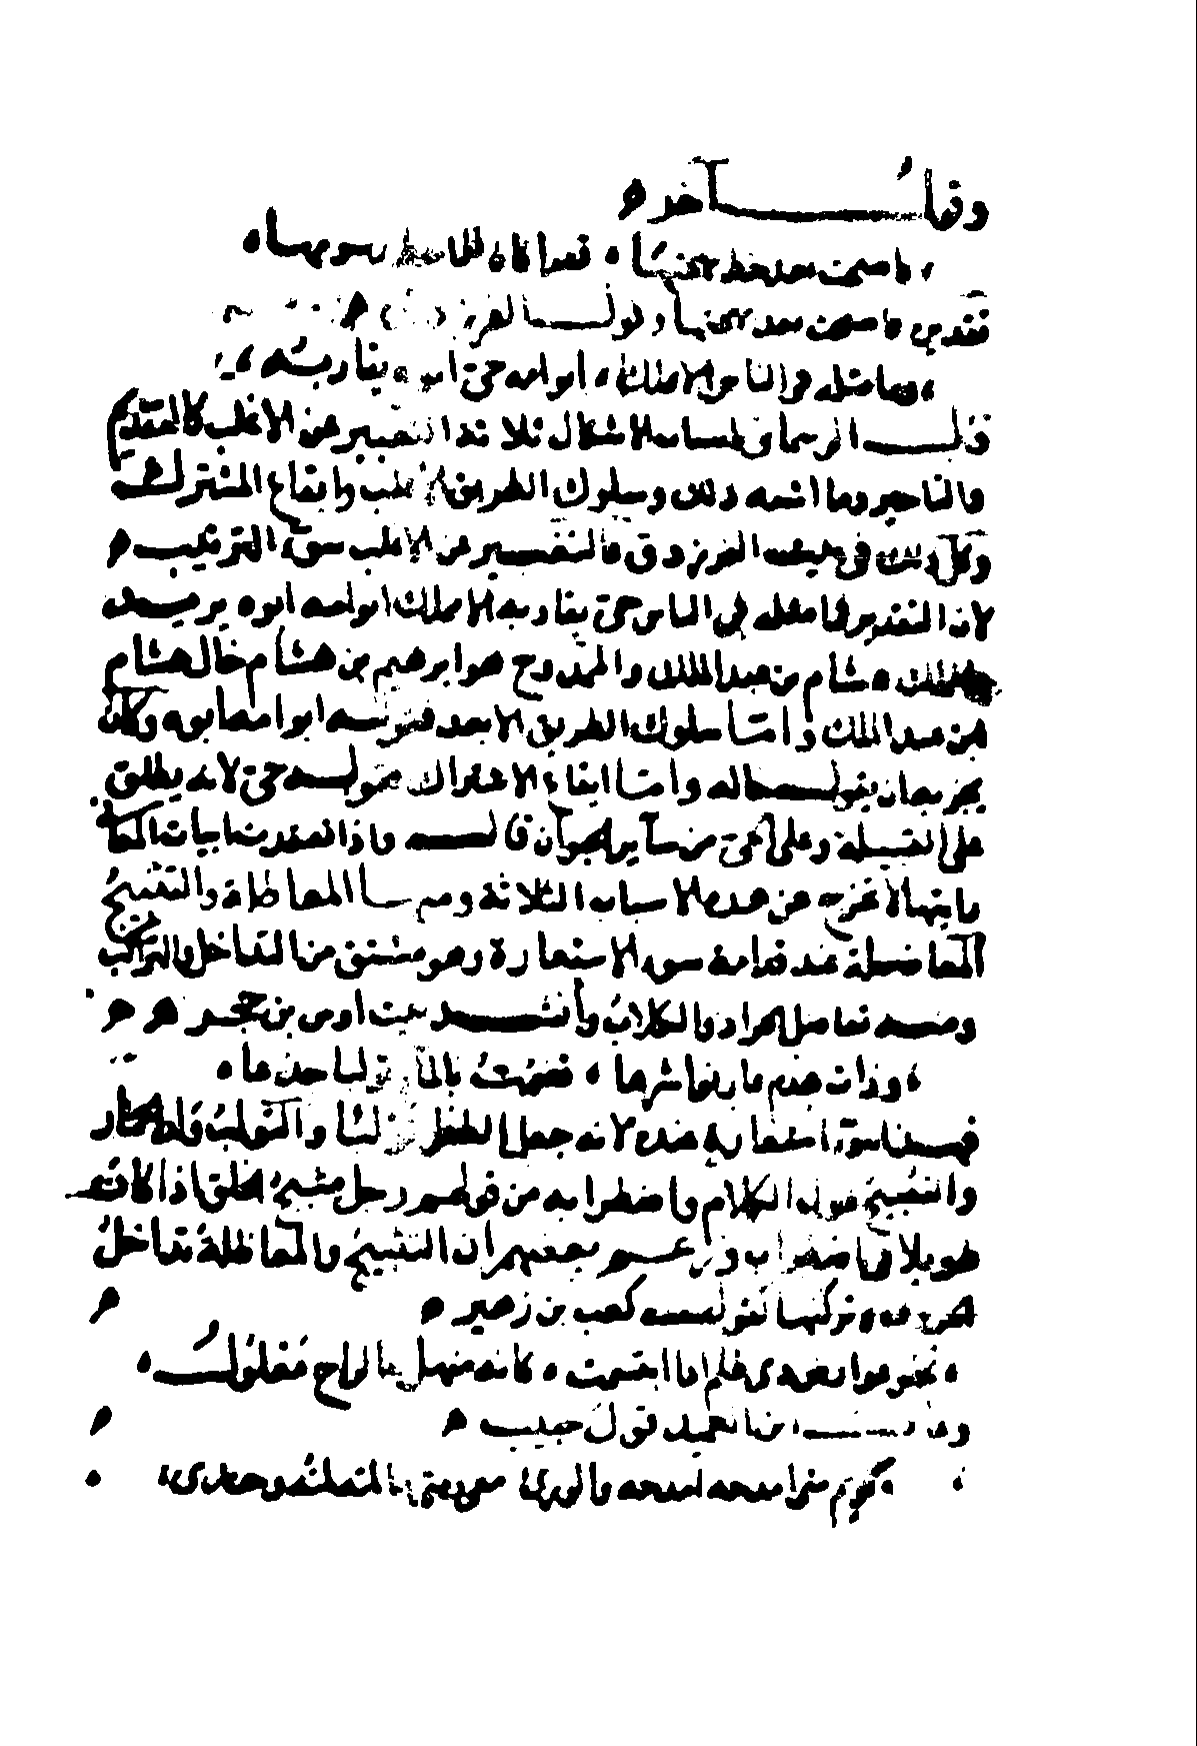 وقال آخر
فاصبحت بعد خط بهجتها ، كان قفرا رسومها
تقديره فاصبحت بعد بهجتها وقول الفرزدق
وما مثله في الناس الا مملكا ، ابو امه حي ابوه يقاربه
قال الرماني اسباب الاشكال ثلاثة التغيير عن الاغلب كالتقديم
والتاخير وما اشبه ذلك وسلوك الطريق الابعد وايقاع المشترك
وكل ذلك في بيت الفرزدق فالتغيير عن الاغلب سوء الترتيب
لان التقدير وما مثله في الناس حي يقاربه الا مملك ابو امه ابوه يريد
بالمملك هشام بن عبد الملك والممدوح هو ابرهيم بن هشام خال هشام
بن عبد الملك وامتا سلوك الطريق الابعد فقوله ابو امه ابوه وكان
يجزيه ان يقول خاله وامتا ايقاع الاشتراك فقوله حي لانه يطلق
على القبيلة وعلى الحي من ساير الحيوان قال واذا تفقدت ابيات المعاني
رايتها لا تخرج عن هذه الاسباب الثلاثة ومنها المعاظلة والتثبيج
المعاضلة عند قدامة سوء الاستعارة وهو مشتق من التداخل والتراكب
ومنه تعاضل الجراد والكلاب وأنشد بيت اوس بن حجر
وذات هدم عار نواشرها ، تصمت بالماء تولبا جدعا
فهذا سوء استعارة عنده لانه جعل الطفل تولبا والتولب ولد الحمار
والتثبيج طول الكلام واضطرابه من قولهم رجل مثبج الخلق اذا كان
طويلا في اضطراب وزعم بعضهم ان التثبيج والمعاظلة تداخل
الحروف وتركبها كقول كعب بن زهير
تجلو عوارض ذي ظلم اذا ابتسمت ، كانه منهل بالراح معلول
وعاب ابن العميد قول حبيب
كريم متى امدحه امدحه والورى معي ومتى ما لمته لمته وحدي